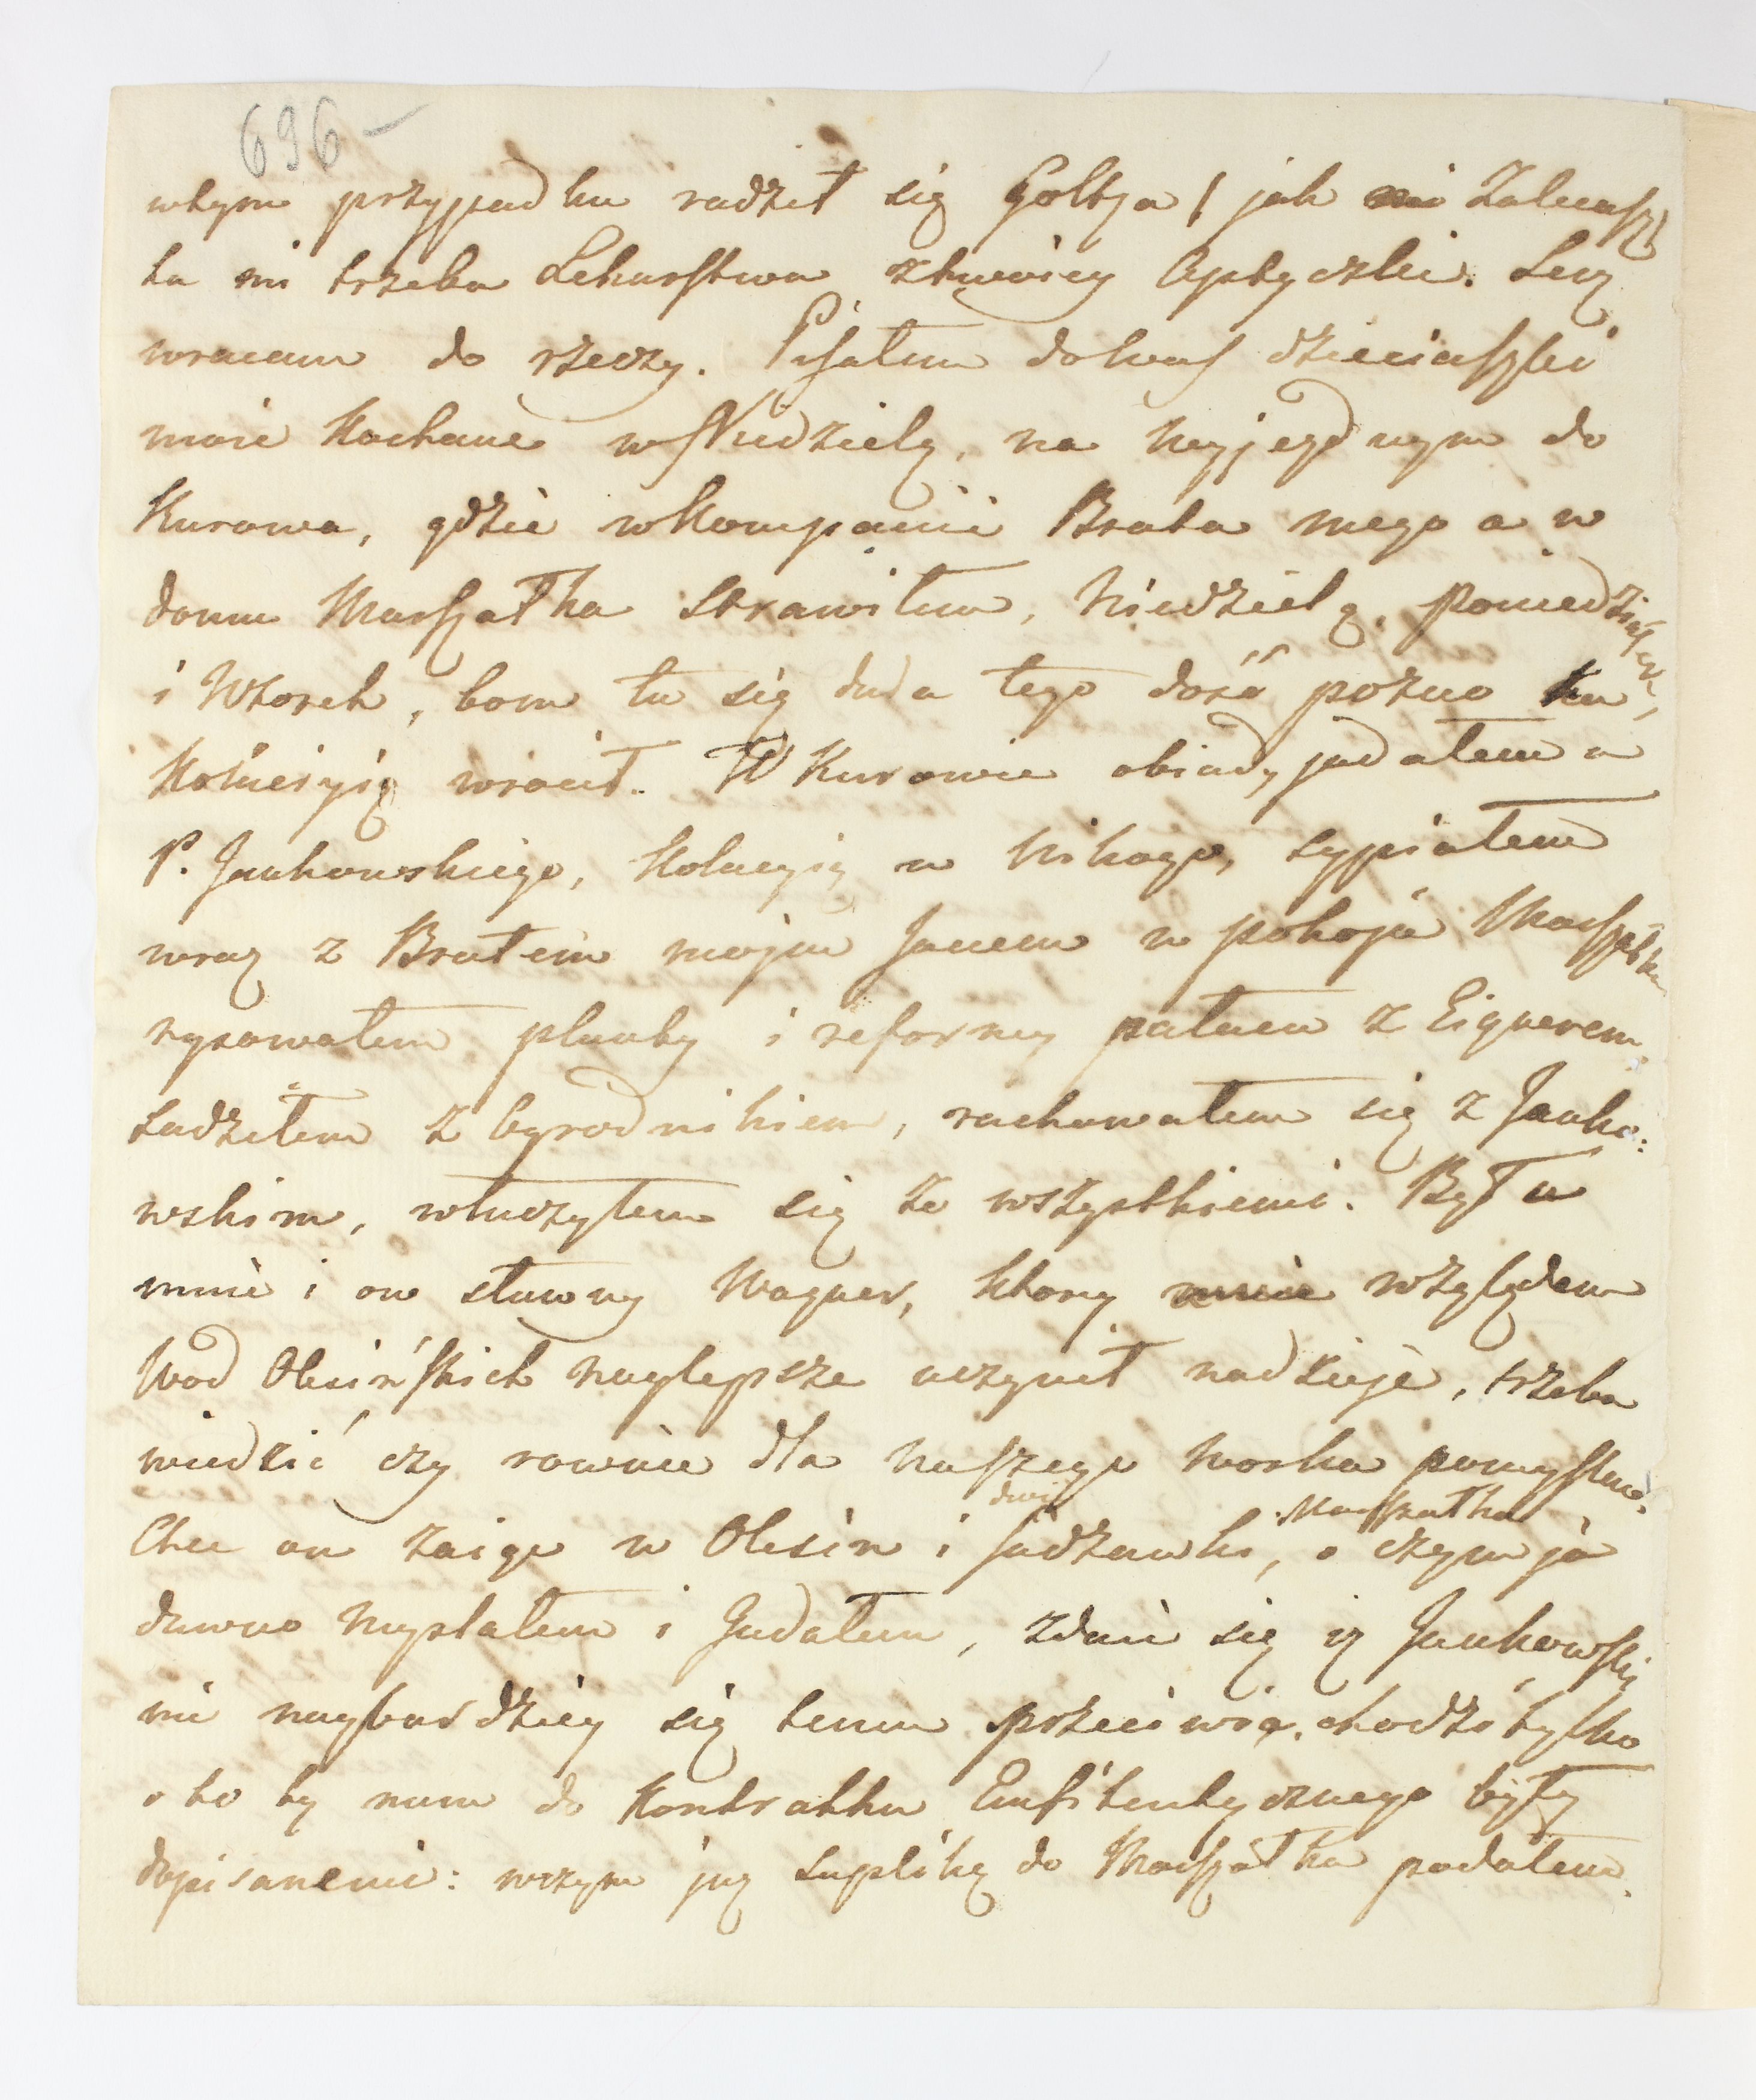 696 –
wtym przypadku radził się Goltza / jak mi Zaleca/
ta mi trzeba Lekarstwa Aptyczki. Lecz
wracam do rzeczy. Pisałem dowas dzieciaszki
moie Kochane w Niedzielę, na wyjezdnym do
Kurowa, gdzie wKompanii Brata mego a w
domu Marszałka strawiłem, Niedzielę, poniedziałek
i Wtorek, bom tu się dnia tego dość pożno na
Kolacyią wrócił. W Kurowie obiady jadałem u
P. Jankowskiego, Kolacyią u Nikogo, sypiałem
wraz z Bratem mojm Janem w pokoju Marszałka
rysowałem planty i reformy pałacu z Eignerem
sadziłem z Ogrodnikiem, rachowałem się z Janko:
wskim, włuczyłem się ze wszystkiemi. Był u
mnie i ow sławny Wagner, ktory względem
Wod Olesińskich naylepsze uczynił nadzieje, trzeba
wiedzić czy rownie dla naszego worka pomyslne.
dwie Marszałka
Chce on zaige w Olesin i sadzawki, o czym ja
dawno myslałem i Gadałem, zdaie się iż Jankowski
mi naybardziey się temu przeciwia. chodzi tylko
o to by nam do Kontraktu Emfiteutycznego były
dopisanemi: wczym już suplikę do Marszałka podałem.